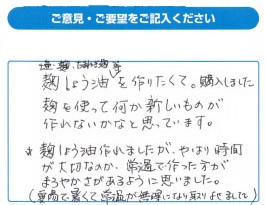 ご意見・ご要望をご記入ください
塩・麹、しょうゆ麹等
麹しょう油を作りたくて。購入しました
麹を使って何か新しいものが
作れないかなと思っています。
* 麹しょう油作れましたが、やはり時間
が大切なのか、常温で作った方が
まろやかさがあるように思いました。
(夏場で暑くて常温が無理になり取りよせました)